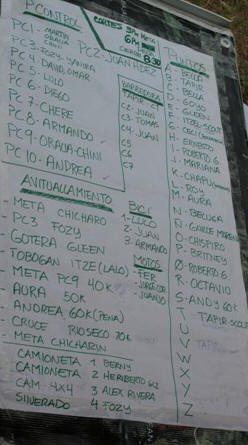 P CONTROL
PC1- MARTIN
ORALIA
CHINI
PC2- JUAN HDEZ
PC 3- FOZY, YANIRA
PC 4- DAVID OMAR
PC 5- LULO
PC 6- DIEGO
PC 7- CHERE
PC 8- ARMANDO
PC 9- ORALIA-CHINI
PC 10- ANDREA
CORTES 3PM META
6PM
8:30
BARREDORA
TAPIR C1
C2- JUAN
C3- TOMAS
C4- JUAN
C5
C6
C7
AVITUALLAMIENTO
- META CHICHARO
- PC3 FOZY
- GOTERA GLEEN
- TOBOGAN ITZE (LALO)
- META PC9 40K
- AURA 50K
- ANDREA 60K (PEÑA)
- CRUCE RIOSECO 70K
- META CHICHARIN
BICI
1- LUCO
2- JUAN
3- ARMANDO
MOTOS
- FER
- JUANJO
CAMIONETA 1 BERNY
CAMIONETA 2 HERIBERTO
CAM 4X4 3 ALEX RIVERA
SILVERADO 4 FOZY
PUNTOS
A- BELLA
B- TAPIR
C- BELLA
D- GOYO
E- GLEEN
H- ERNESTO
I- ROBERTO G
J- MARIANA
K- CHAPU
L- ROSA
M- AURA
N- BELUGA
Ñ- GALILEE
O- CHISPIRO
P- BRITNEY
Q- ROBERTO G
R- OCTAVIO
S- ANDY 60K
T
U
V
W
X
Y
Z